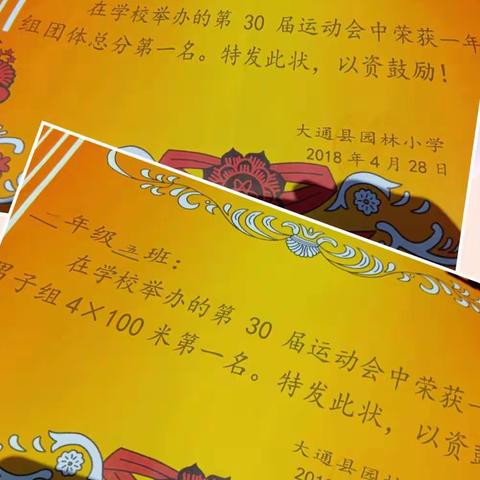 在学校举办的第 30 届运动会中荣获一年
组团体总分第一名。特发此状，以资鼓励！
大通县园林小学
2018 年 4 月 28 日
二年级五班：
在学校举办的第 30 届运动会中荣获一
男子组4×100米第一名。特发此状，以资鼓
大通县园林